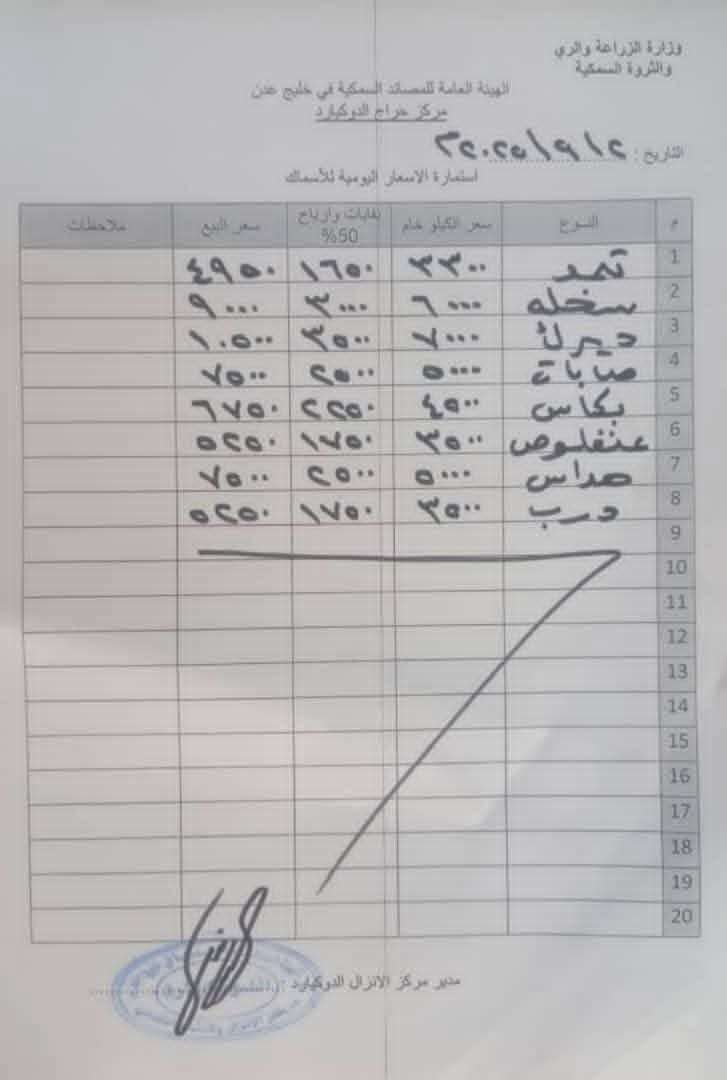 وزارة الزراعة والري
والثروة السمكية
الهيئة العامة للمصائد السمكية في خليج عدن
مركز حراج الدوكيارد
التاريخ :
استمارة الاسعار اليومية للأسماك
م النوع سعر الكيلو خام نفايات وارباح 50% سعر البيع ملاحظات
1 ثمد ٣٣٠٠ ١٦٥٠ ٤٩٥٠
2 سخله ٦٠٠٠ ٣٠٠٠ ٩٠٠٠
3 ديرك ٧٠٠٠ ٣٥٠٠ ١٠٥٠٠
4 ٥٠٠٠ ٢٥٠٠ ٧٥٠٠
5 ٤٥٠٠ ٢٢٥٠ ٦٧٥٠
6 عنفلوص ٣٥٠٠ ١٧٥٠ ٥٢٥٠
7 هداس ٥٠٠٠ ٢٥٠٠ ٧٥٠٠
8 درب ٣٥٠٠ ١٧٥٠ ٥٢٥٠
9
10
11
12
13
14
15
16
17
18
19
20
مدير مركز الانزال الدوكيارد :